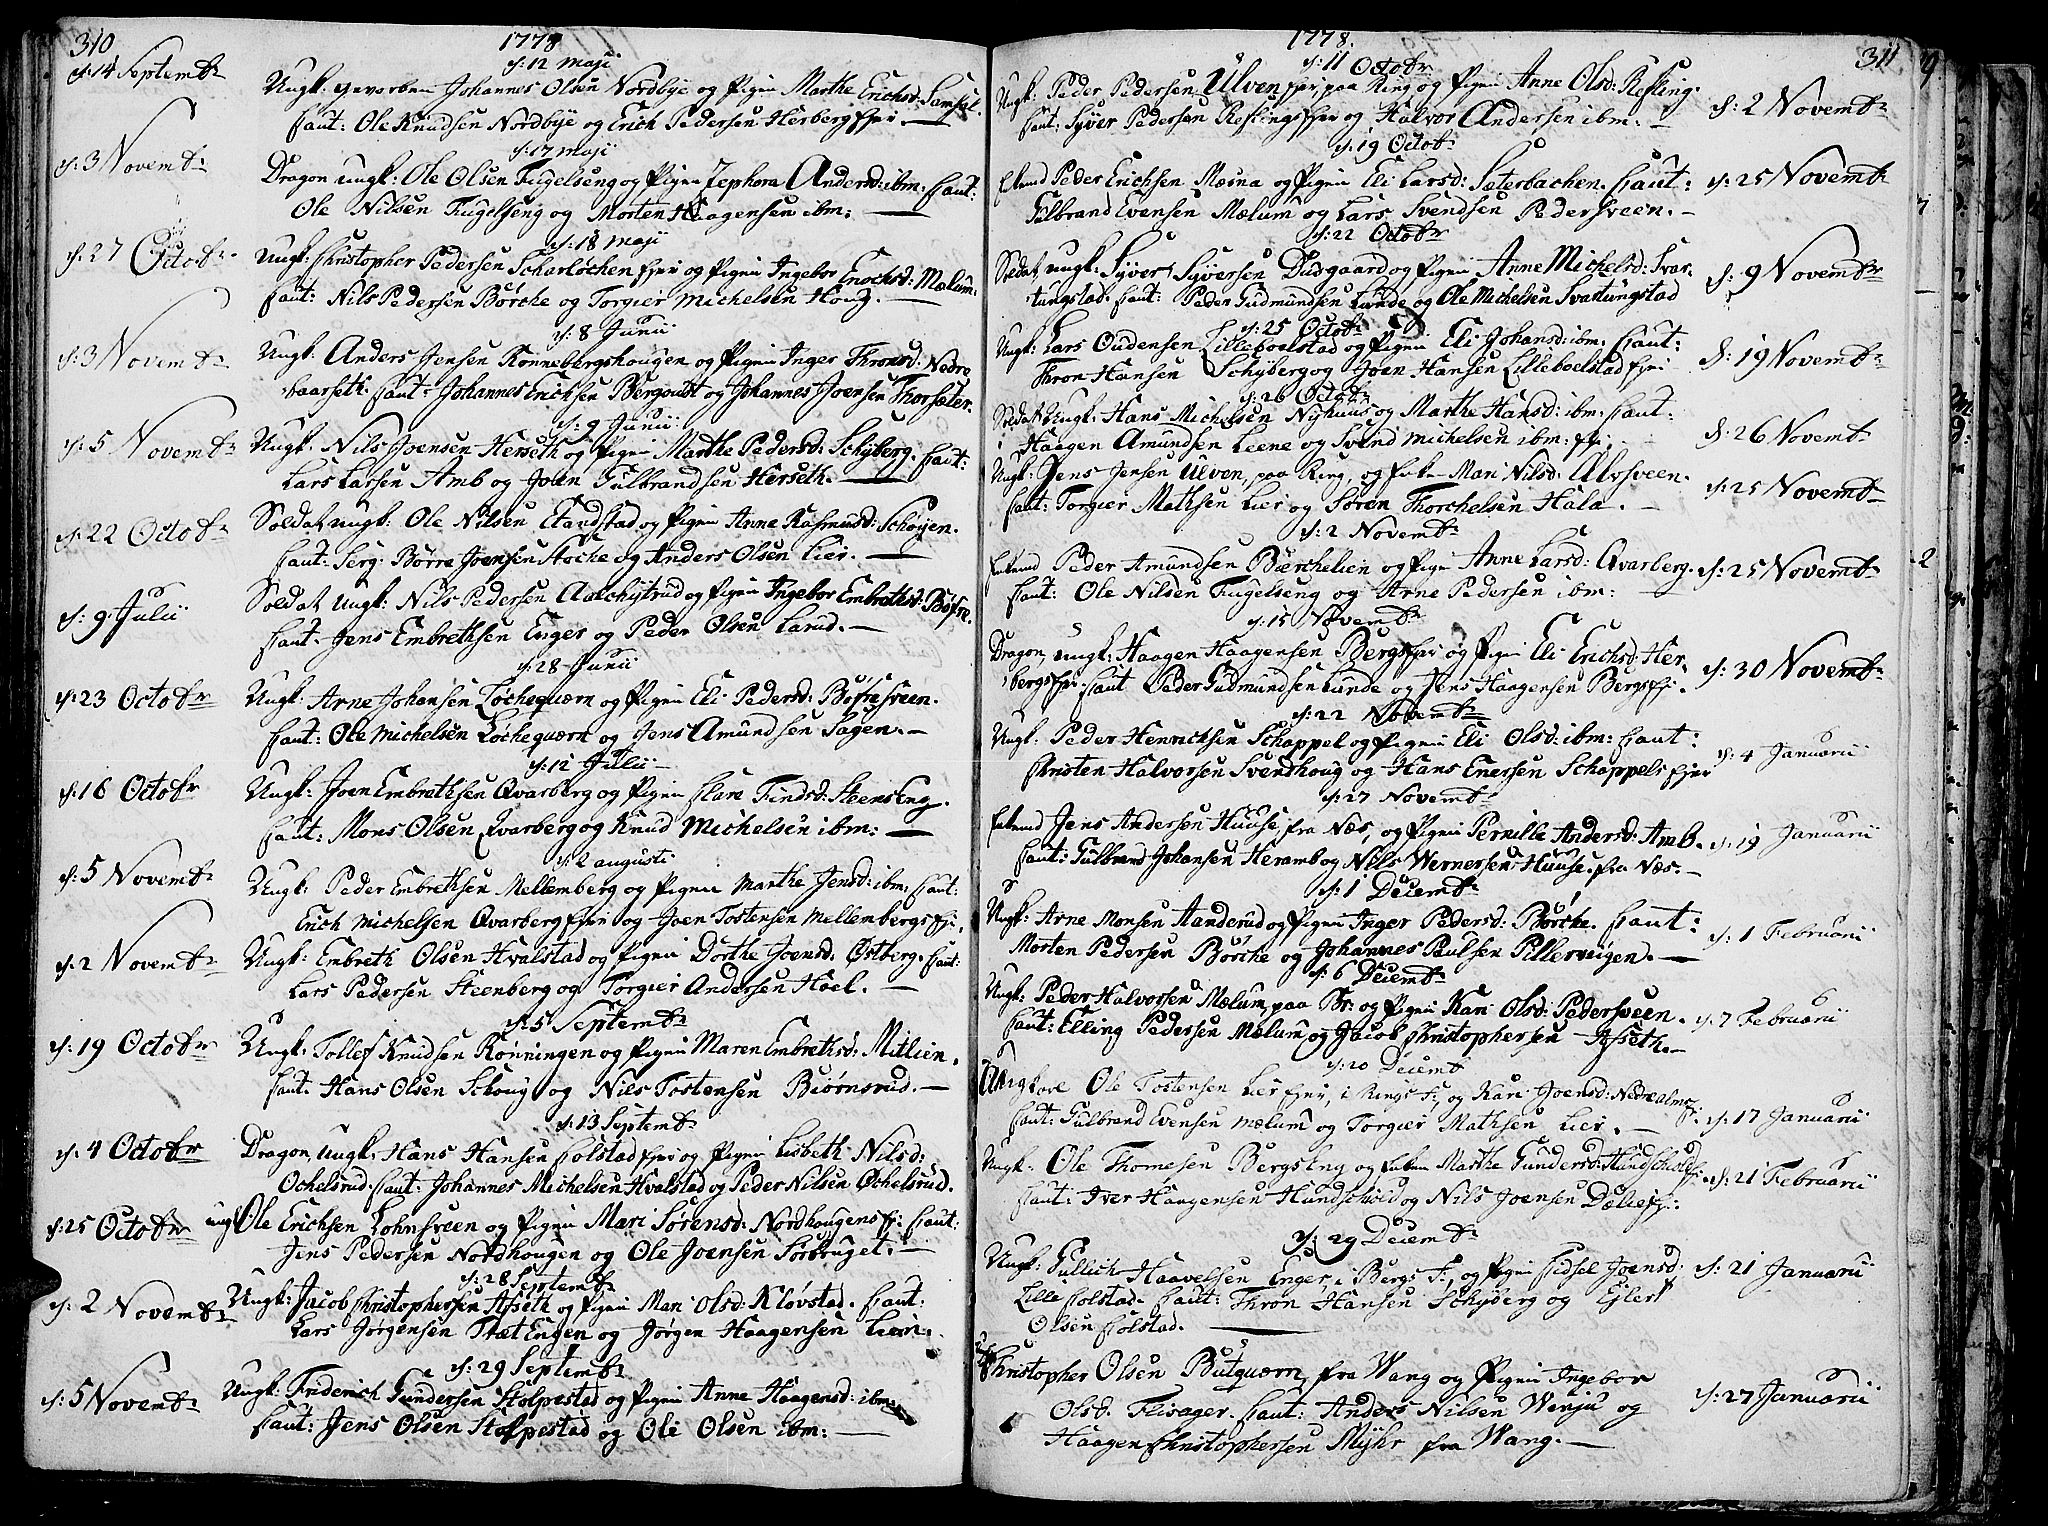 310
1778
d: 12 Maji
d: 14 Septembr
Ungk. gevorben Johannes Olsen Nordbye og Pigen Marthe Erichsd: Samsal.
Caut: Ole Knudsen Nordbye og Erich Pedersen Herberg Ejer. —
d: 17 Maji
d: 3 Novembr
Dragon ungk: Ole Olsen Fugelseng og Pigen Zephora Andersd: ibm: Caut:
Ole Nilsen Fugelseng og Morten Haagensen ibm: —
d: 18 Maji
d: 27 Octobr
Ungk: Christopher Pedersen Scharløchen Ejer og Pigen Ingebor Enochsd: Mælum.
Caut: Nils Pedersen Børche og Torgier Michelsen Houg. —
d: 8 Junii
d: 3 Novembr
Ungk: Anders Jensen Rønnebergshougen og Pigen Inger Thronsd: Nedre
baarseth. Caut: Johannes Erichsen Bergodt og Johannes Joensen Thorsæter.
d: 9 Junii
d: 5 Novembr
Ungk. Nils Joensen Herseth og Pigen Marthe Pedersd: Schyberg. Caut:
Lars Larsen Amb og Joen Gulbrandsen Herseth. —
d: 22 Octobr
Soldat ungk: Ole Nilsen Standstad og Pigen Anna Rasmusd: Schøyen.
Caut: Serg. Børre Joensen Stoche og Anders Olsen Lier. —
d: 9 Julii
Soldat Ungk: Nils Pedersen Aalchystrud og Pigen Ingebor Embrethsd: Bøfre.
Caut. Jens Embrethsen Enger og Peder Olsen Larud. —
d: 28 Junii
d: 23 Octobr
Ungk: Arne Johansen Løchequærn og Pigen Eli Pedersd: Bøfresveen.
Caut: Ole Michelsen Løchequærn og Jens Amundsen Sagen. —
d: 12 Julii
d: 16 Octobr
Ungk: Joen Embrethsen Qvarberg og Pigen Clare Findsd: SteensEng.
Caut: Mons Olsen Qvarberg og Knud Michelsen ibm: —
d: 2 augusti
d: 5 Novembr
Ungk: Peder Embrethsen Mellemberg og Pigen Marthe Jensd: ibm: Caut:
Erich Michelsen Qvarberg Ejer og Joen Tostensen Mellembergs Ej:
d: 2 Novembr
Ungk: Embreth Olsen Hvalstad og Pigen Dorthe Joensd. Østberg. Caut:
Lars Pedersen Steenberg og Torgier Andersen Hoel. —
d: 5 Septembr
d: 19 Octobr
Ungk: Tollef Knudsen Rønningen og Pigen Maren Embrethsd: Mitlien.
Caut: Hans Olsen Schoug og Nils Tostensen Biørnsrud. —
d: 13 Septembr
d: 4 Octobr
Dragon, ungk: Hans Hansen Colstad Ejer og Pigen Lisbeth Nilsd:
Ochelsrud. Caut: Johannes Michelsen Hvalstad og Peder Nilsen Øchelsrud.
d: 25 Octobr
ungk Ole Erichsen Lohnsveen og Pigen Mari Sørensd: Nordhougens Ej: Caut:
Jens Pedersen Nordhougen og Ole Joensen Sørbruget. —
d: 28 Septembr
d: 2 Novembr
Ungk: Jacob Christophersen Afseth og Pigen Mari Olsd: Kløvstad. Caut:
Lars Jørgensen StætEngen og Jørgen Haagensen Lien.
d: 29 Septembr
d: 5 Novembr
Ungk: Friderich Gundersen Stolpestad og Pigen Anne Haagensd: ibm:
Caut: Jens Olsen Stolpestad og Ole Olsen ibm: —
311
1778.
d: 11 Octobr
Ungk. Peder Pedersen Ulven Ejer, paa Ring og Pigen Anne Olsd: Refling.
Caut: Syver Pedersen Reflings Ejer og Halvor Andersen ibm: —
d: 2 Novembr
d: 19 Octobr
Enkemd Peder Erichsen Mæsna og Pigen Eli Larsd: Sæterbachen. Caut:
Gulbrand Evensen Mælum og Lars Svendsen Pedersveen. —
d: 25 Novembr
d: 22 Octobr
Soldat, ungk: Syver Syversen Dudgaard og Pigen Anne Michelsd: Svar-
tungstad. Caut: Peder Gudmundsen Lunde og Ole Michelsen Svartungstad
d: 9 Novembr
d: 25 Octobr
Ungk: Lars Oudensen Lilleboelstad og Pigen Eli Johansd: ibm: Caut:
Thron Hansen Schyberg og Joen Hansen Lilleboelstad Ejer
d: 19 Novembr
d: 26 Octobr
Soldat Ungk: Hans Michelsen Nyhuus og Marthe Hansd: ibm: Caut:
Haagen Amundsen Leene og Svend Michelsen ibm: Ej:
d: 26 Novembr
Ungk: Jens Jensen Ulven, paa Ring, og Enken Mari Nilsd: Ulvsveen.
Caut: Torgier Mathsen Lier og Søren Thorchelsen Hala. —
d: 25 Novembr
d: 2 Novembr
Enkemd Peder Amundsen Bierchelien og Pigen Anne Larsd: Qvarberg.
Caut: Ole Nilsen Fugelseng og Arne Pedersen ibm: —
d: 25 Novembr
d: 15 Novembr
Dragon, ungk: Haagen Haagensen Bergs Ejer og Pigen Eli Erichsd: Her-
bergs Ejer. Caut Peder Gudmundsen Lunde og Jens Haagensen Bergs Ej:
d: 30 Novembr
d: 22 Novembr
Ungk. Peder Henricksen Schappel og Pigen Eli Olsd: ibm: Caut:
Christen Halvorsen Svendhoug og Hans Enersen Schappels Ejer
d: 4 Januarii
d: 27 Novembr
Enkemd Jens Andersen Huuse, fra Næs, og Pigen Pernille Andersd: Amb.
Caut: Gulbrand Johansen Heramb og Nills Wernersen Huuse, fra Næs. —
d: 19 Januarii
d: 1 Decembr
Ungk: Arne Monsen Aanderud og Pigen Inger Pedersd: Børche. Caut:
Morten Pedersen Børche og Johannes Paulsen Pillerviigen. —
d: 1 Februarii
d: 6 Decembr
Ungk: Peder Halvorsen Mælum, paa Br: og Pigen Kari Olsd: Pedersveen.
Caut: Elling Pedersen Mælum og Jacob Christophersen Afseth. —
d: 7 Februarii
d: 20 Decemb
Ungkare Ole Tostensen Lier Ejer, i Rings S:, og Kari Joensd: Nedrealms
Caut: Gulbrand Evensen Mælum og Torgier Mathsen Lier. — Ej.
d: 17 Januarii
Ungk: Ole Thornesen BergsEng og Enken Marthe Gundersd: Hundschold
Caut: Iver Haagensen Hundschold og Nils Joensen Dælie Ej:
d: 21 Februarii
d: 29 Decembr
Ungk: Gullich Haavelsen Enger, i Bergs S:, og Pigen Sidsel Joensd:
Lille Colstad. Caut: Thron Hansen Schyberg og Ejlert
Olsen Colstad. —
d: 21 Januarii
Christopher Olsen Butquærn, fra Wang og Pigen Ingebor
Olsd. Flivager. Caut: Anders Nilsen Winju og
Haagen Christophersen Myhr fra Wang. —
d: 27 Januarii